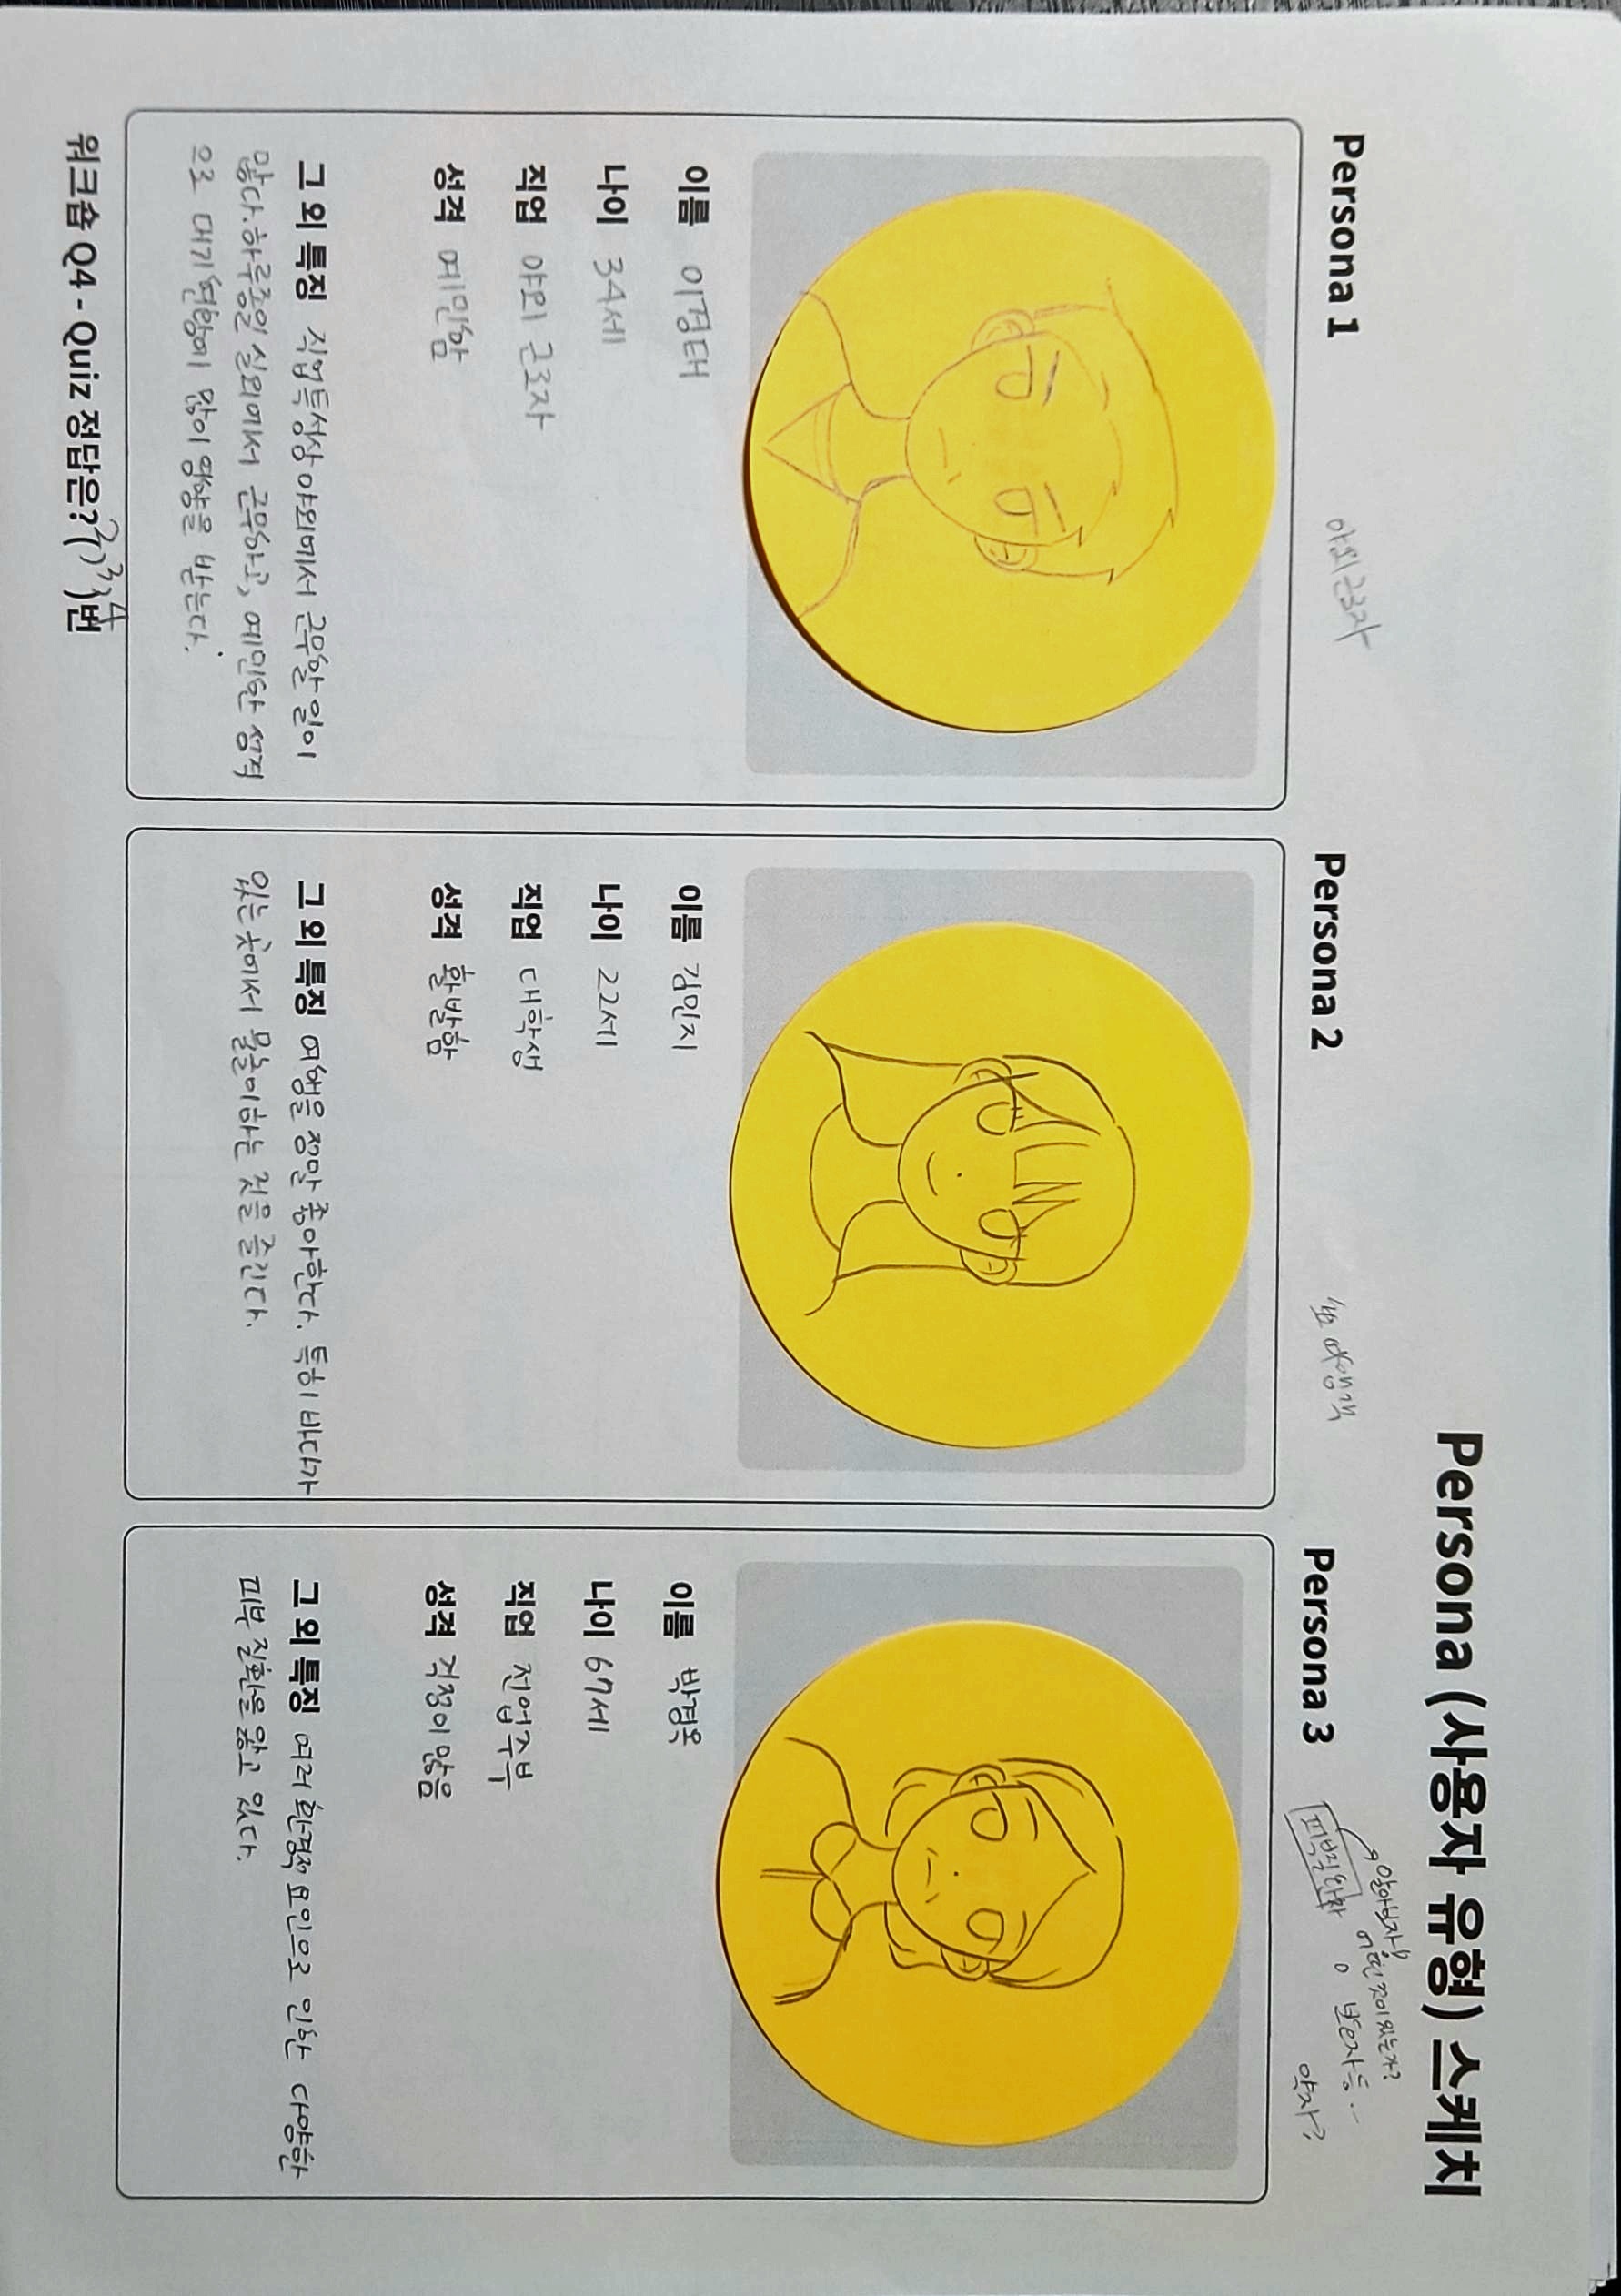 Persona (사용자 유형) 스케치
Persona 1
야외근로자
이름 이경태
나이 34세
직업 야외 근로자
성격 예민함
그 외 특징 직업특성상 야외에서 근무할 일이
많다. 하루종일 실외에서 근무하고, 예민한 성격
으로 대기현황에 많이 영향을 받는다.
Persona 2
여행객
이름 김민지
나이 22세
직업 대학생
성격 활발함
그 외 특징 여행을 정말 좋아한다. 특히 바다가
있는 곳에서 물놀이하는 것을 즐긴다.
Persona 3
피부질환자
알아보자!!
어떤 것이 있는가?
약자?
이름 박경옥
나이 67세
직업 전업주부
성격 걱정이 많음
그 외 특징 여러 환경적 요인으로 인한 다양한
피부 질환을 앓고 있다.
워크숍 Q4 - Quiz 정답은? (2, 3, 4)번